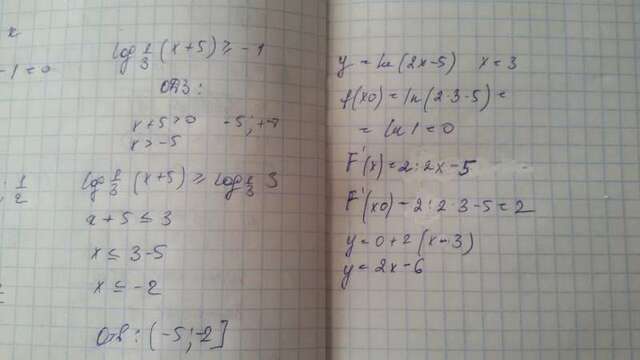 x
-1=0
log 1/3 (x+5) ≥ -1
ОДЗ:
x+5>0 -5;+∞
x>-5
1/2
log 1/3 (x+5) ≥ log 1/3 3
x+5 ≤ 3
x ≤ 3-5
x ≤ -2
Отв: (-5;-2]
y = ln(2x-5) x=3
f(x0) = ln(2·3-5) =
= ln 1 = 0
F'(x) = 2:2x-5
F'(x0) - 2:2·3-5 = 2
y = 0+2(x-3)
y = 2x-6